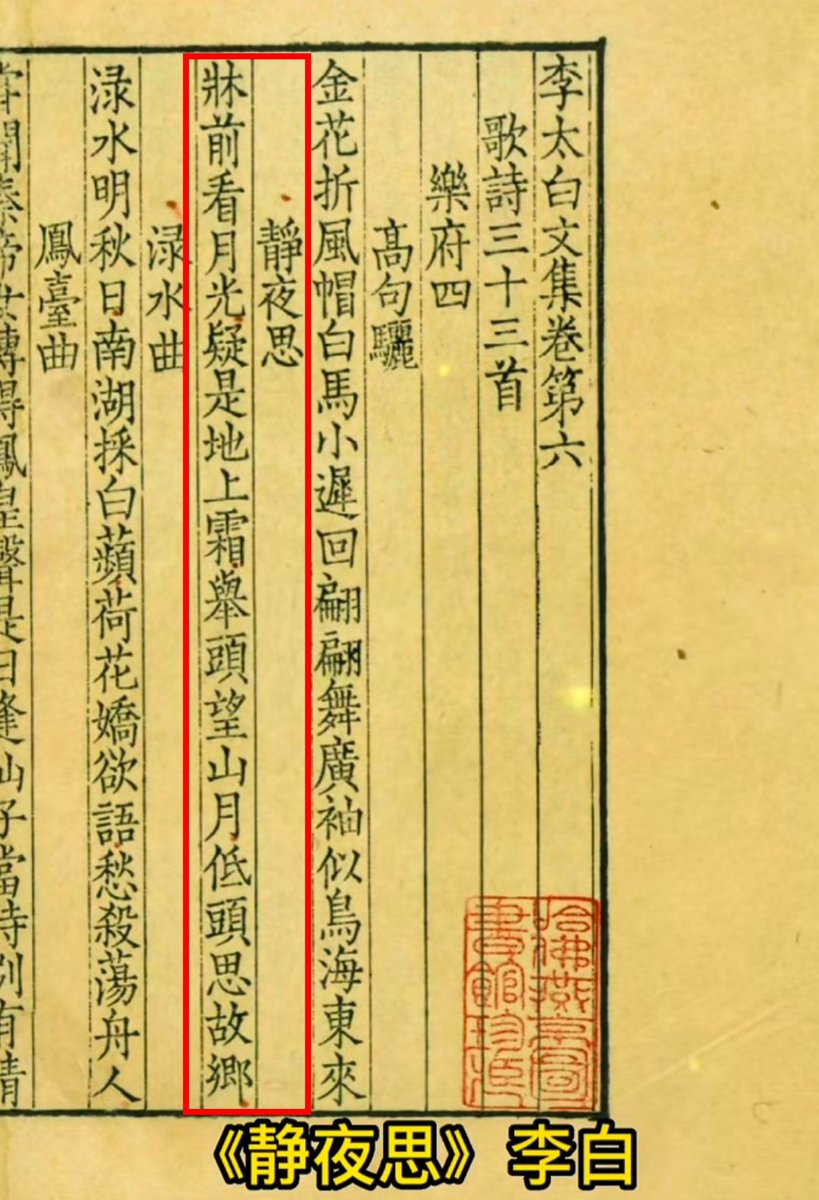 李太白文集卷第六
歌詩三十三首
樂府四
髙句驪
金花折風帽白馬小遲回翩翩舞廣袖似鳥海東來
靜夜思
牀前看月光疑是地上霜舉頭望山月低頭思故鄉
渌水曲
渌水明秋日南湖採白蘋荷花嬌欲語愁殺蕩舟人
鳳臺曲
嘗聞秦帝女傳得鳳皇聲是日逢仙子當時別有情
哈佛燕京圖
書館珍藏
《静夜思》李白